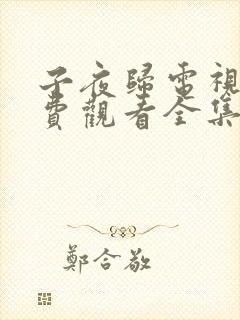 子夜歸電視
費觀看全集
鄭合敬